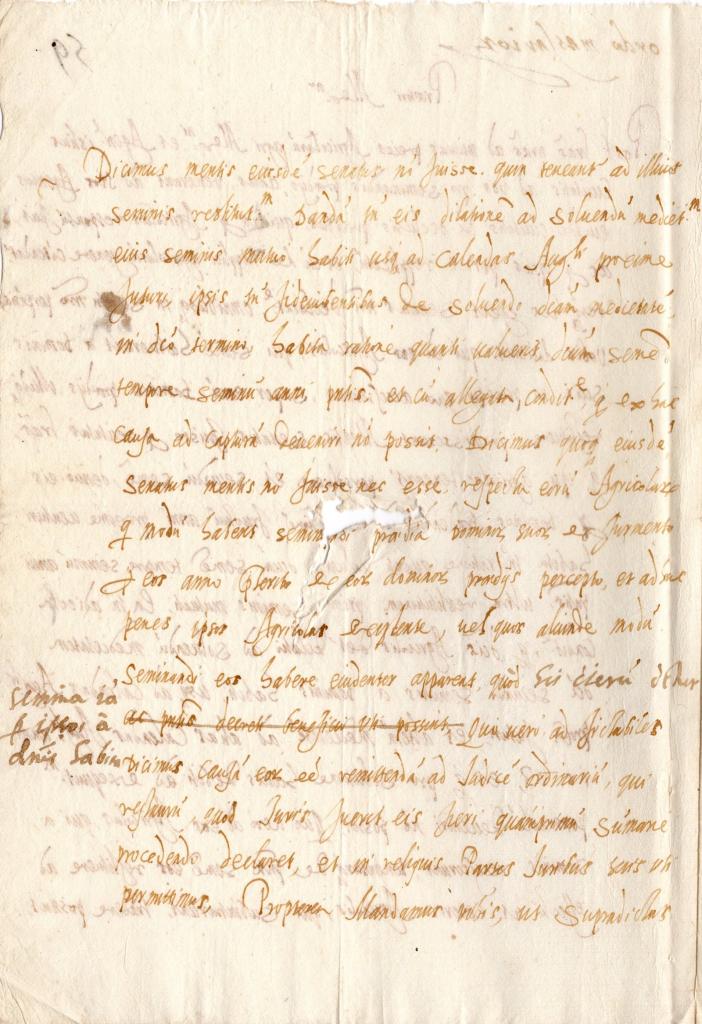 Dicimus mentis eiusdē senatus nō fuisse quin teneant ad illius
seminis restitut.m Dandā tn̄ eis dilationē ad soluendū mediet.m
eius seminis mutuo habiti usq ad Calendas Aug.ti proxime
futuri, ipsis tn̄ fideiubentibus de soluendo dictā medietatē,
in dco termino, habita ratione quanti ualuerit, dictū semē
tempore seminū anni pntis et cū allegata condit.e q ex hac
causa ad capturā deueniri nō possit. Dicimus quoq eiusdē
senatus mentis nō fuisse nec esse respectu eorū Agricolarū
q modū habent seminandi praedia Dominor suor ex frumento
p eos anno pterito ex eor dominor praedijs percepto, et adhuc
penes ipsos Agricolas existente, uel quos aliunde modū
seminandi eos habere euidenter apparent, quod
semina iā
p ipsos à
dnīs habita
ac pntis decreti beneficio uti possint Qui uero ad fictabiles
Dicimus causā eor eē remittendā ad Iudicē ordinariū, qui
quod Iuris fuerit eis fieri quamprimū sūmarie
procedendo declaret, et in reliquis Partes Iuribus suis uti
permittimus, Propterea Mandamus uobis, ut supradictas